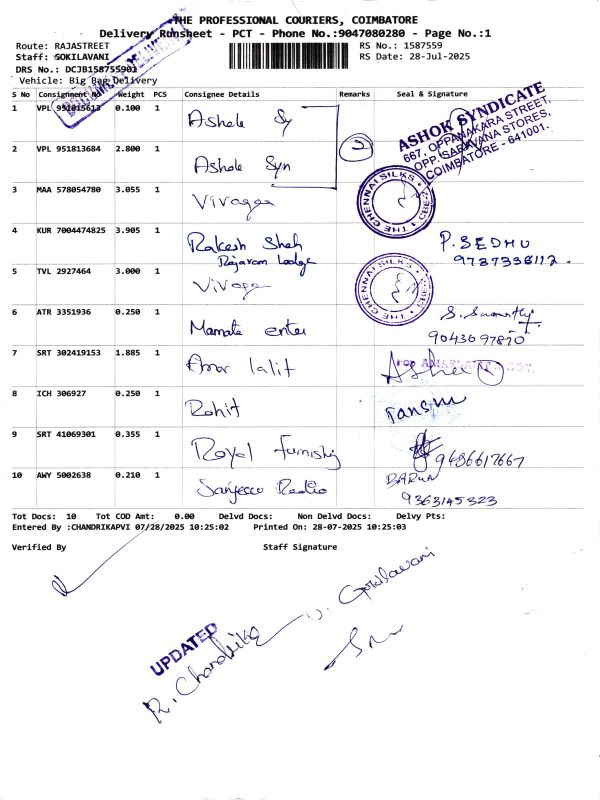 THE PROFESSIONAL COURIERS, COIMBATORE
Delivery Runsheet - PCT - Phone No.:9047080280 - Page No.:1
Route: RAJASTREET
Staff: GOKILAVANI
DRS No.: DCJB158755901
Vehicle: Big Bag Delivery
RS No.: 1587559
RS Date: 28-Jul-2025
S No Consignment No Weight PCS Consignee Details Remarks Seal & Signature
1 VPL 951815613 0.100 1 Ashok Sy
ASHOK SYNDICATE
667, OPPANAKARA STREET,
OPP. SARAVANA STORES,
COIMBATORE - 641001.
2 VPL 951813684 2.800 1 Ashok Syn 2
3 MAA 578054780 3.055 1 Vivagaa
THE CHENNAI SILKS CBE
4 KUR 7004474825 3.905 1 Rakesh Shah
Rajaram Lodge
P. SEDHU
9787338112.
5 TVL 2927464 3.000 1 Vivaga
THE CHENNAI SILKS CBE
6 ATR 3351936 0.250 1 Mamata enter
9043697870
7 SRT 302419153 1.885 1 Amar lalit
8 ICH 306927 0.250 1 Rohit
9 SRT 41069301 0.355 1 Royal furnishig 9486617667
10 AWY 5002638 0.210 1 Radio
BARUN
9363145323
Tot Docs: 10 Tot COD Amt: 0.00 Delvd Docs: Non Delvd Docs: Delvy Pts:
Entered By :CHANDRIKAPVI 07/28/2025 10:25:02 Printed On: 28-07-2025 10:25:03
Verified By Staff Signature
Gokilavani
UPDATED
R. Chandrika